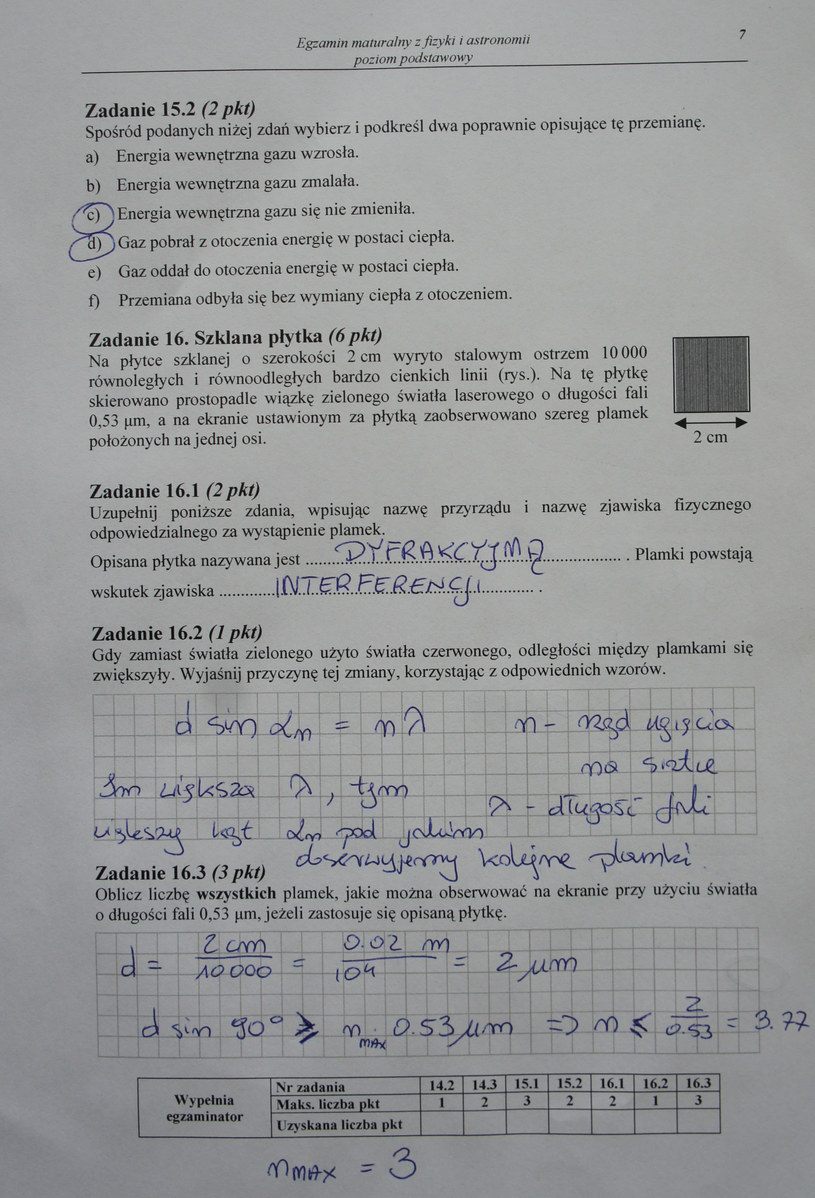 Egzamin maturalny z fizyki i astronomii
poziom podstawowy
7
Zadanie 15.2 (2 pkt)
Spośród podanych niżej zdań wybierz i podkreśl dwa poprawnie opisujące tę przemianę.
a) Energia wewnętrzna gazu wzrosła.
b) Energia wewnętrzna gazu zmalała.
c) Energia wewnętrzna gazu się nie zmieniła.
d) Gaz pobrał z otoczenia energię w postaci ciepła.
e) Gaz oddał do otoczenia energię w postaci ciepła.
f) Przemiana odbyła się bez wymiany ciepła z otoczeniem.
Zadanie 16. Szklana płytka (6 pkt)
Na płytce szklanej o szerokości 2 cm wyryto stalowym ostrzem 10 000
równoległych i równoodległych bardzo cienkich linii (rys.). Na tę płytkę
skierowano prostopadle wiązkę zielonego światła laserowego o długości fali
0,53 µm, a na ekranie ustawionym za płytką zaobserwowano szereg plamek
położonych na jednej osi.
2 cm
Zadanie 16.1 (2 pkt)
Uzupełnij poniższe zdania, wpisując nazwę przyrządu i nazwę zjawiska fizycznego
odpowiedzialnego za wystąpienie plamek.
Opisana płytka nazywana jest ......... DYFRAKCYJNĄ ................... . Plamki powstają
wskutek zjawiska ............. INTERFERENCJI ............. .
Zadanie 16.2 (1 pkt)
Gdy zamiast światła zielonego użyto światła czerwonego, odległości między plamkami się
zwiększyły. Wyjaśnij przyczynę tej zmiany, korzystając z odpowiednich wzorów.
d sin αn = nλ n - rząd ugięcia
na siatce
Im większa λ, tym λ - długość fali
większy kąt αn pod jakim
obserwujemy kolejne plamki.
Zadanie 16.3 (3 pkt)
Oblicz liczbę wszystkich plamek, jakie można obserwować na ekranie przy użyciu światła
o długości fali 0,53 µm, jeżeli zastosuje się opisaną płytkę.
d = 2 cm / 10 000 = 0.02 m / 10⁴ = 2 µm
d sin 90° ≥ nMAX · 0.53 µm => n ≤ 2 / 0.53 = 3.77
Wypełnia egzaminator
Nr zadania 14.2 14.3 15.1 15.2 16.1 16.2 16.3
Maks. liczba pkt 1 2 3 2 2 1 3
Uzyskana liczba pkt
nMAX = 3